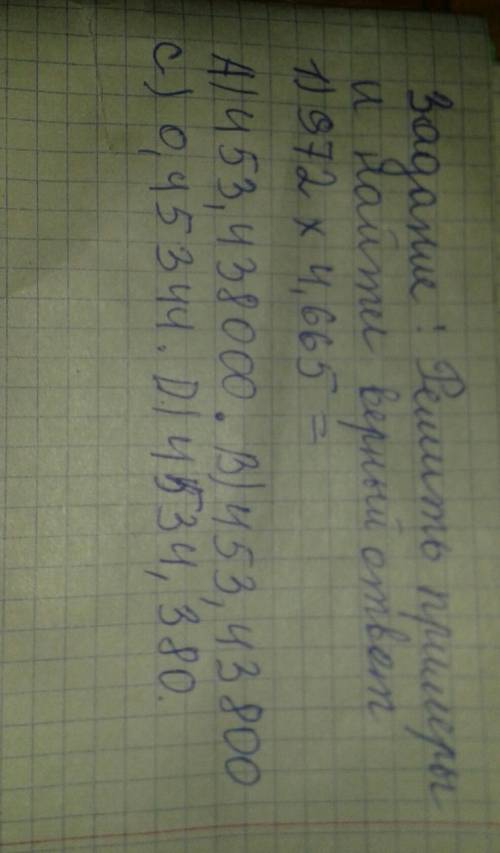 Задание: Решить примеры
и найти верный ответ
1) 972 x 4,665 =
A) 453,438000. B) 453,43800
C) 0,45344. D) 4534,380.